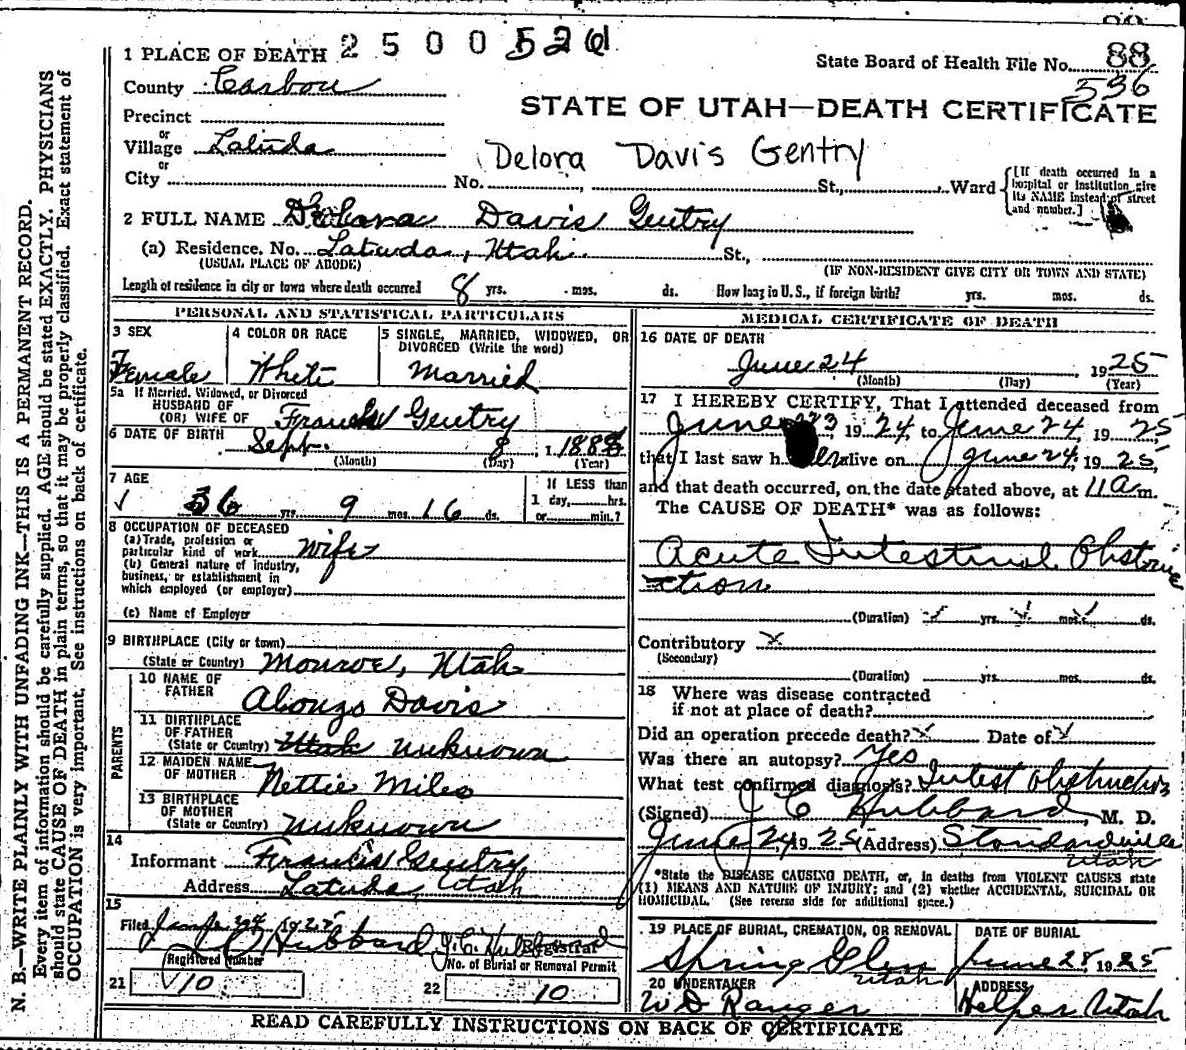 88
2 5 0 0 526
1 PLACE OF DEATH
State Board of Health File No. 88
536
County Carbon
STATE OF UTAH—DEATH CERTIFICATE
Precinct
or
Village Latuda
Delora Davis Gentry
or
City No. St., Ward
[If death occurred in a hospital or institution give its NAME instead of street and number.]
2 FULL NAME Delora Davis Gentry
(a) Residence. No. Latuda, Utah St.,
(USUAL PLACE OF ABODE) (IF NON-RESIDENT GIVE CITY OR TOWN AND STATE)
Length of residence in city or town where death occurred 8 yrs. mos. ds. How long in U.S., if foreign birth? yrs. mos. ds.
PERSONAL AND STATISTICAL PARTICULARS
3 SEX
Female
4 COLOR OR RACE
White
5 SINGLE, MARRIED, WIDOWED, OR
DIVORCED (Write the word)
Married
5a If Married, Widowed, or Divorced
HUSBAND OF
(OR) WIFE OF Francis Gentry
6 DATE OF BIRTH Sept. 8, 1888
(Month) (Day) (Year)
7 AGE
36 yrs. 9 mos. 16 ds.
If LESS than
1 day, hrs.
or min.?
8 OCCUPATION OF DECEASED
(a) Trade, profession or
particular kind of work wife
(b) General nature of industry,
business, or establishment in
which employed (or employer)
(c) Name of Employer
9 BIRTHPLACE (City or town)
(State or Country) Monroe, Utah
PARENTS
10 NAME OF
FATHER
Alonzo Davis
11 BIRTHPLACE
OF FATHER
(State or Country) Utah unknown
12 MAIDEN NAME
OF MOTHER
Nettie Miles
13 BIRTHPLACE
OF MOTHER
(State or Country) unknown
14
Informant Francis Gentry
Address Latuda, Utah
15
Filed June 24 1925
J C Hubbard J. C. Hubbard Registrar
Registered Number
21 10
No. of Burial or Removal Permit
22 10
MEDICAL CERTIFICATE OF DEATH
16 DATE OF DEATH
June 24, 1925
(Month) (Day) (Year)
17 I HEREBY CERTIFY, That I attended deceased from
June 23 1924, to June 24, 1925
that I last saw her alive on June 24, 1925,
and that death occurred, on the date stated above, at 11 a m.
The CAUSE OF DEATH* was as follows:
Acute Intestinal Obstru
ction
(Duration) yrs. mos. ds.
Contributory x
(Secondary)
(Duration) yrs. mos. ds.
18 Where was disease contracted
if not at place of death?
Did an operation precede death? x Date of x
Was there an autopsy? Yes
What test confirmed diagnosis? Intest Obstruction
(Signed) J C Hubbard, M. D.
June 24 1925 (Address) Standardville
Utah
*State the DISEASE CAUSING DEATH, or, in deaths from VIOLENT CAUSES state
(1) MEANS AND NATURE OF INJURY; and (2) whether ACCIDENTAL, SUICIDAL OR
HOMICIDAL. (See reverse side for additional space.)
19 PLACE OF BURIAL, CREMATION, OR REMOVAL
Spring Glen
Utah
DATE OF BURIAL
June 28, 1925
20 UNDERTAKER
W D Ranger
ADDRESS
Helper Utah
READ CAREFULLY INSTRUCTIONS ON BACK OF CERTIFICATE
N. B.—WRITE PLAINLY WITH UNFADING INK—THIS IS A PERMANENT RECORD.
Every item of information should be carefully supplied. AGE should be stated EXACTLY. PHYSICIANS
should state CAUSE OF DEATH in plain terms, so that it may be properly classified. Exact statement of
OCCUPATION is very important. See instructions on back of certificate.